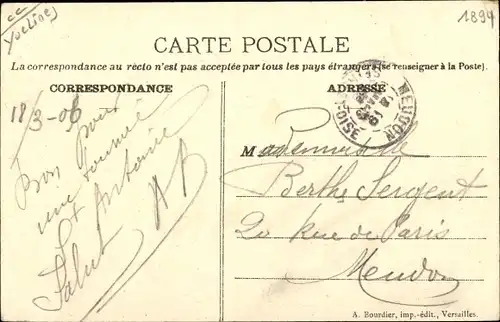 cc
Yvelines
1894
CARTE POSTALE
La correspondance au recto n'est pas acceptée par tous les pays étrangers (se renseigner à la Poste).
CORRESPONDANCE
ADRESSE
MEUDON
OISE
18/3-06
Bon pour
une tournée
St Antoine
Salut
AB
Mademoiselle
Berthe Sergent
20 Rue de Paris
Meudon
A. Bourdier, imp.-édit., Versailles.